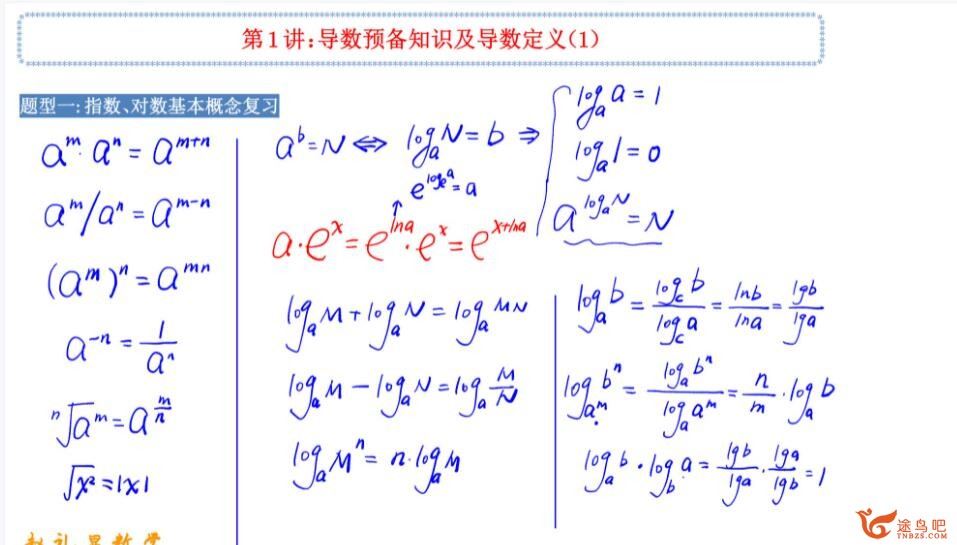 第1讲:导数预备知识及导数定义(1)
题型一:指数、对数基本概念复习
a^m·a^n=a^{m+n}
a^m/a^n=a^{m-n}
(a^m)^n=a^{mn}
a^{-n}=1/a^n
ⁿ√a^m=a^{m/n}
√x²=|x|
a^b=N⇔log_a N=b⇒
log_a a=1
log_a 1=0
a^{log_a N}=N
e^{log_e a}=a
a·e^x=e^{lna}·e^x=e^{x+lna}
log_a M+log_a N=log_a MN
log_a M-log_a N=log_a M/N
log_a M^n=n·log_a M
log_a b=log_c b/log_c a=lnb/lna=lgb/lga
log_{a^m} b^n=log_a b^n/log_a a^m=n/m·log_a b
log_a b·log_b a=lgb/lga·lga/lgb=1
途鸟吧
TNBZS.COM